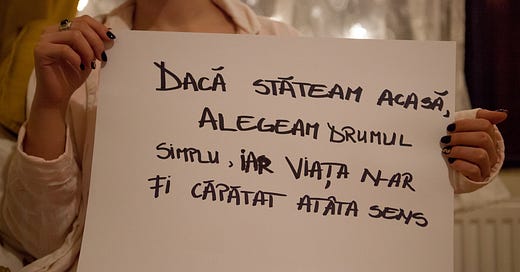 DACĂ STĂTEAM ACASĂ,
ALEGEAM DRUMUL
SIMPLU, IAR VIAȚA N-AR
FI CĂPĂTAT ATÂTA SENS